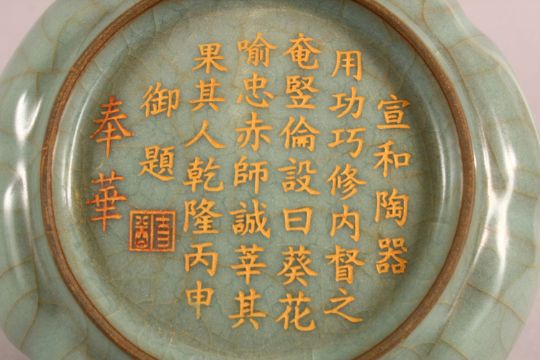 宣和陶器
用功巧修内督之
奄竪倫設曰葵花
喻忠赤師誠莘其
果其人乾隆丙申
御題
奉華